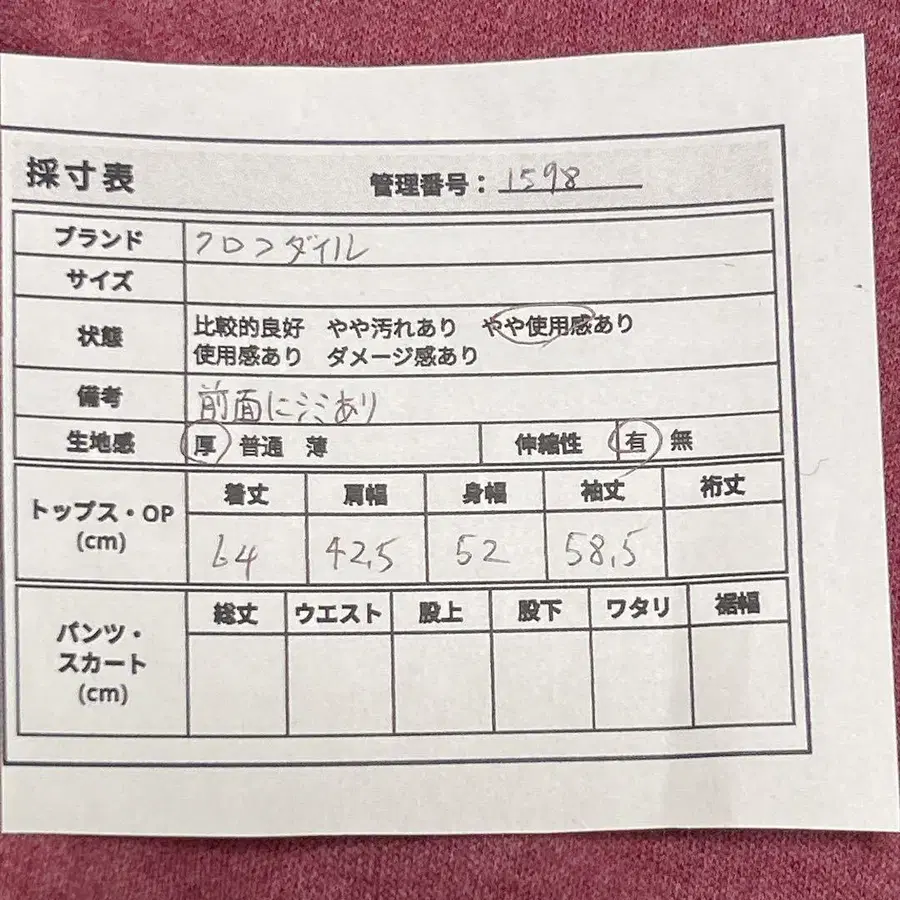 採寸表 管理番号： 1598
ブランド クロコダイル
サイズ
状態 比較的良好 やや汚れあり やや使用感あり
使用感あり ダメージ感あり
備考 前面にシミあり
生地感 厚 普通 薄 伸縮性 有 無
トップス・OP
(cm)
着丈 肩幅 身幅 袖丈 裄丈
64 42.5 52 58.5
パンツ・
スカート
(cm)
総丈 ウエスト 股上 股下 ワタリ 裾幅